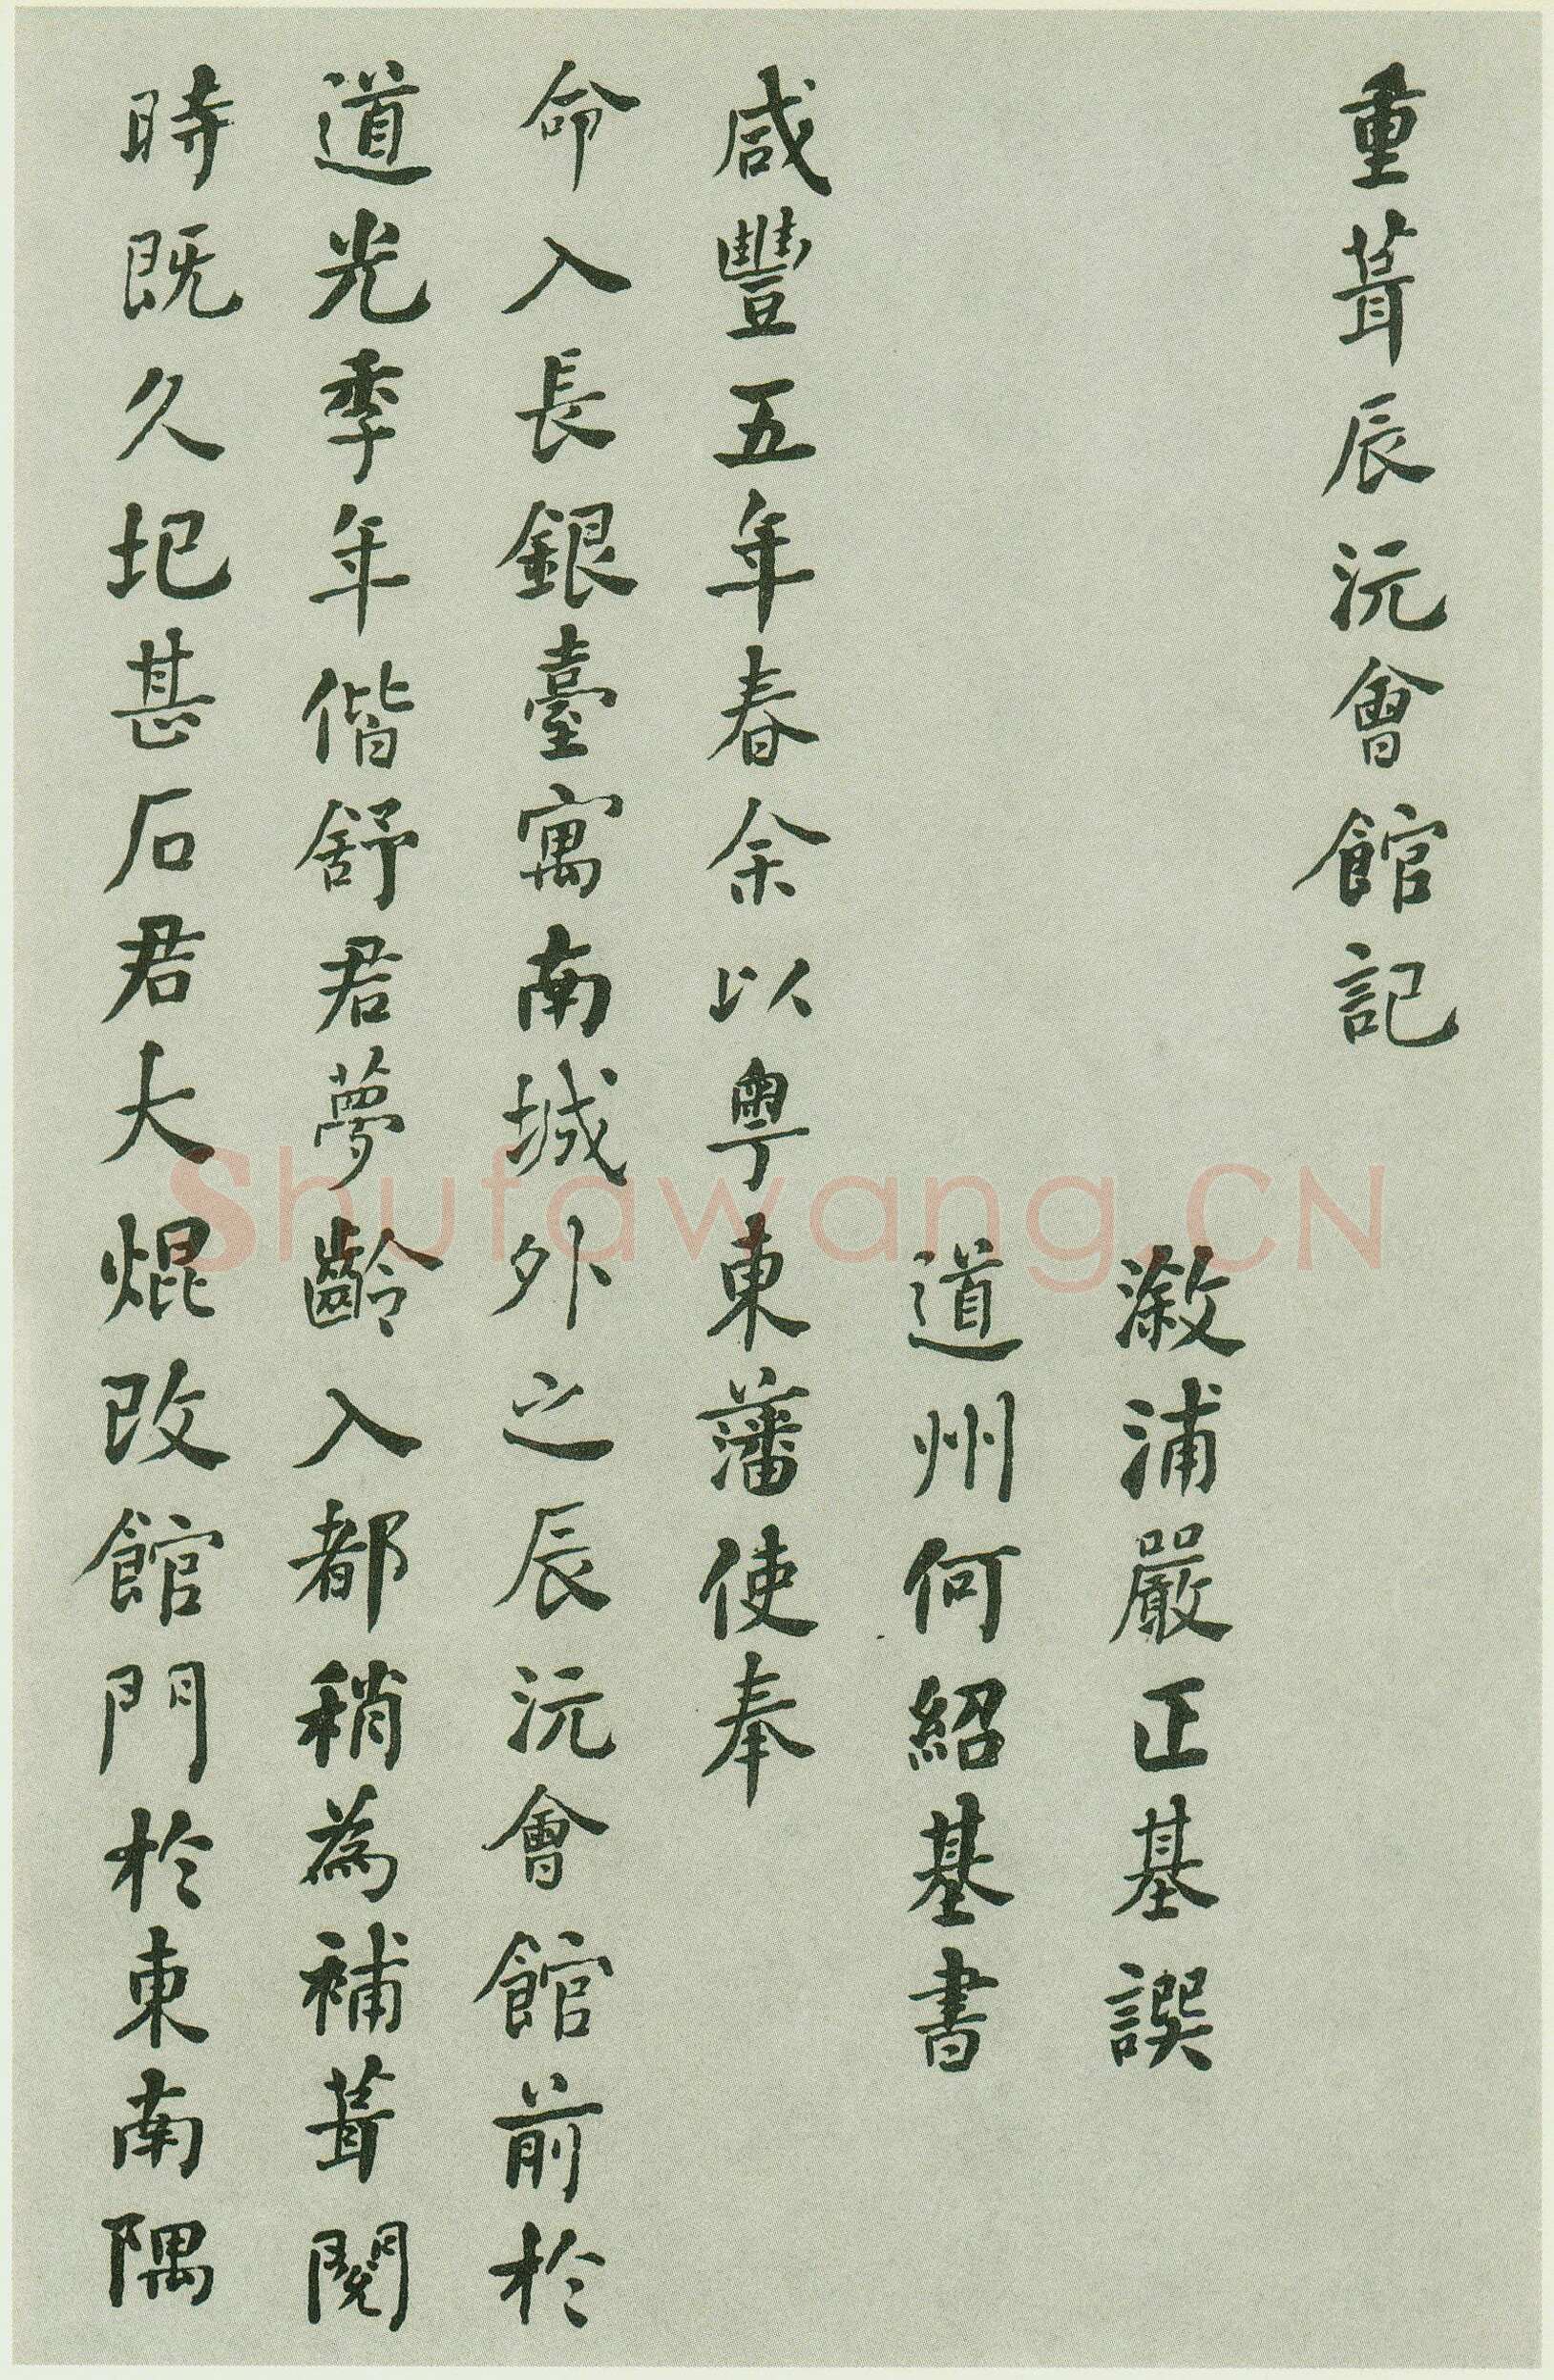 重葺辰沅會館記
溆浦嚴正基譔
道州何紹基書
咸豐五年春余以粵東藩使奉
命入長銀臺寓南城外之辰沅會館前於
道光季年偕舒君夢齡入都稍為補葺閱
時既久圯甚石君大焜改館門於東南隅
Shufawang.CN